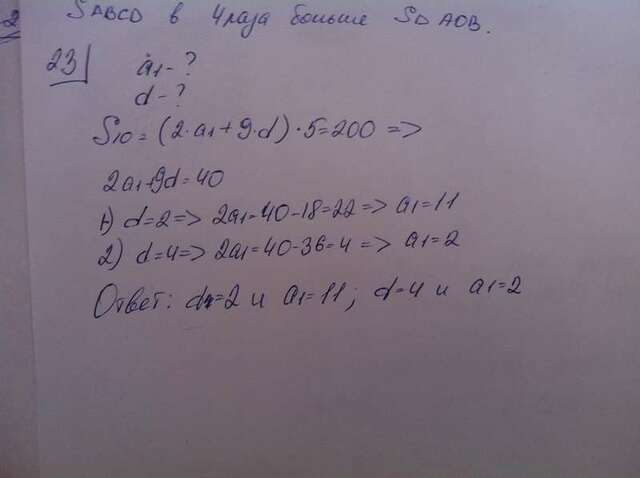 SABCD в 4 раза больше SD AOB.
23|
a1 - ?
d - ?
S10 = (2·a1 + 9·d)·5=200 =>
2a1+9d=40
1) d=2 => 2a1=40-18=22 => a1=11
2) d=4 => 2a1=40-36=4 => a1=2
Ответ: d=2 и a1=11; d=4 и a1=2